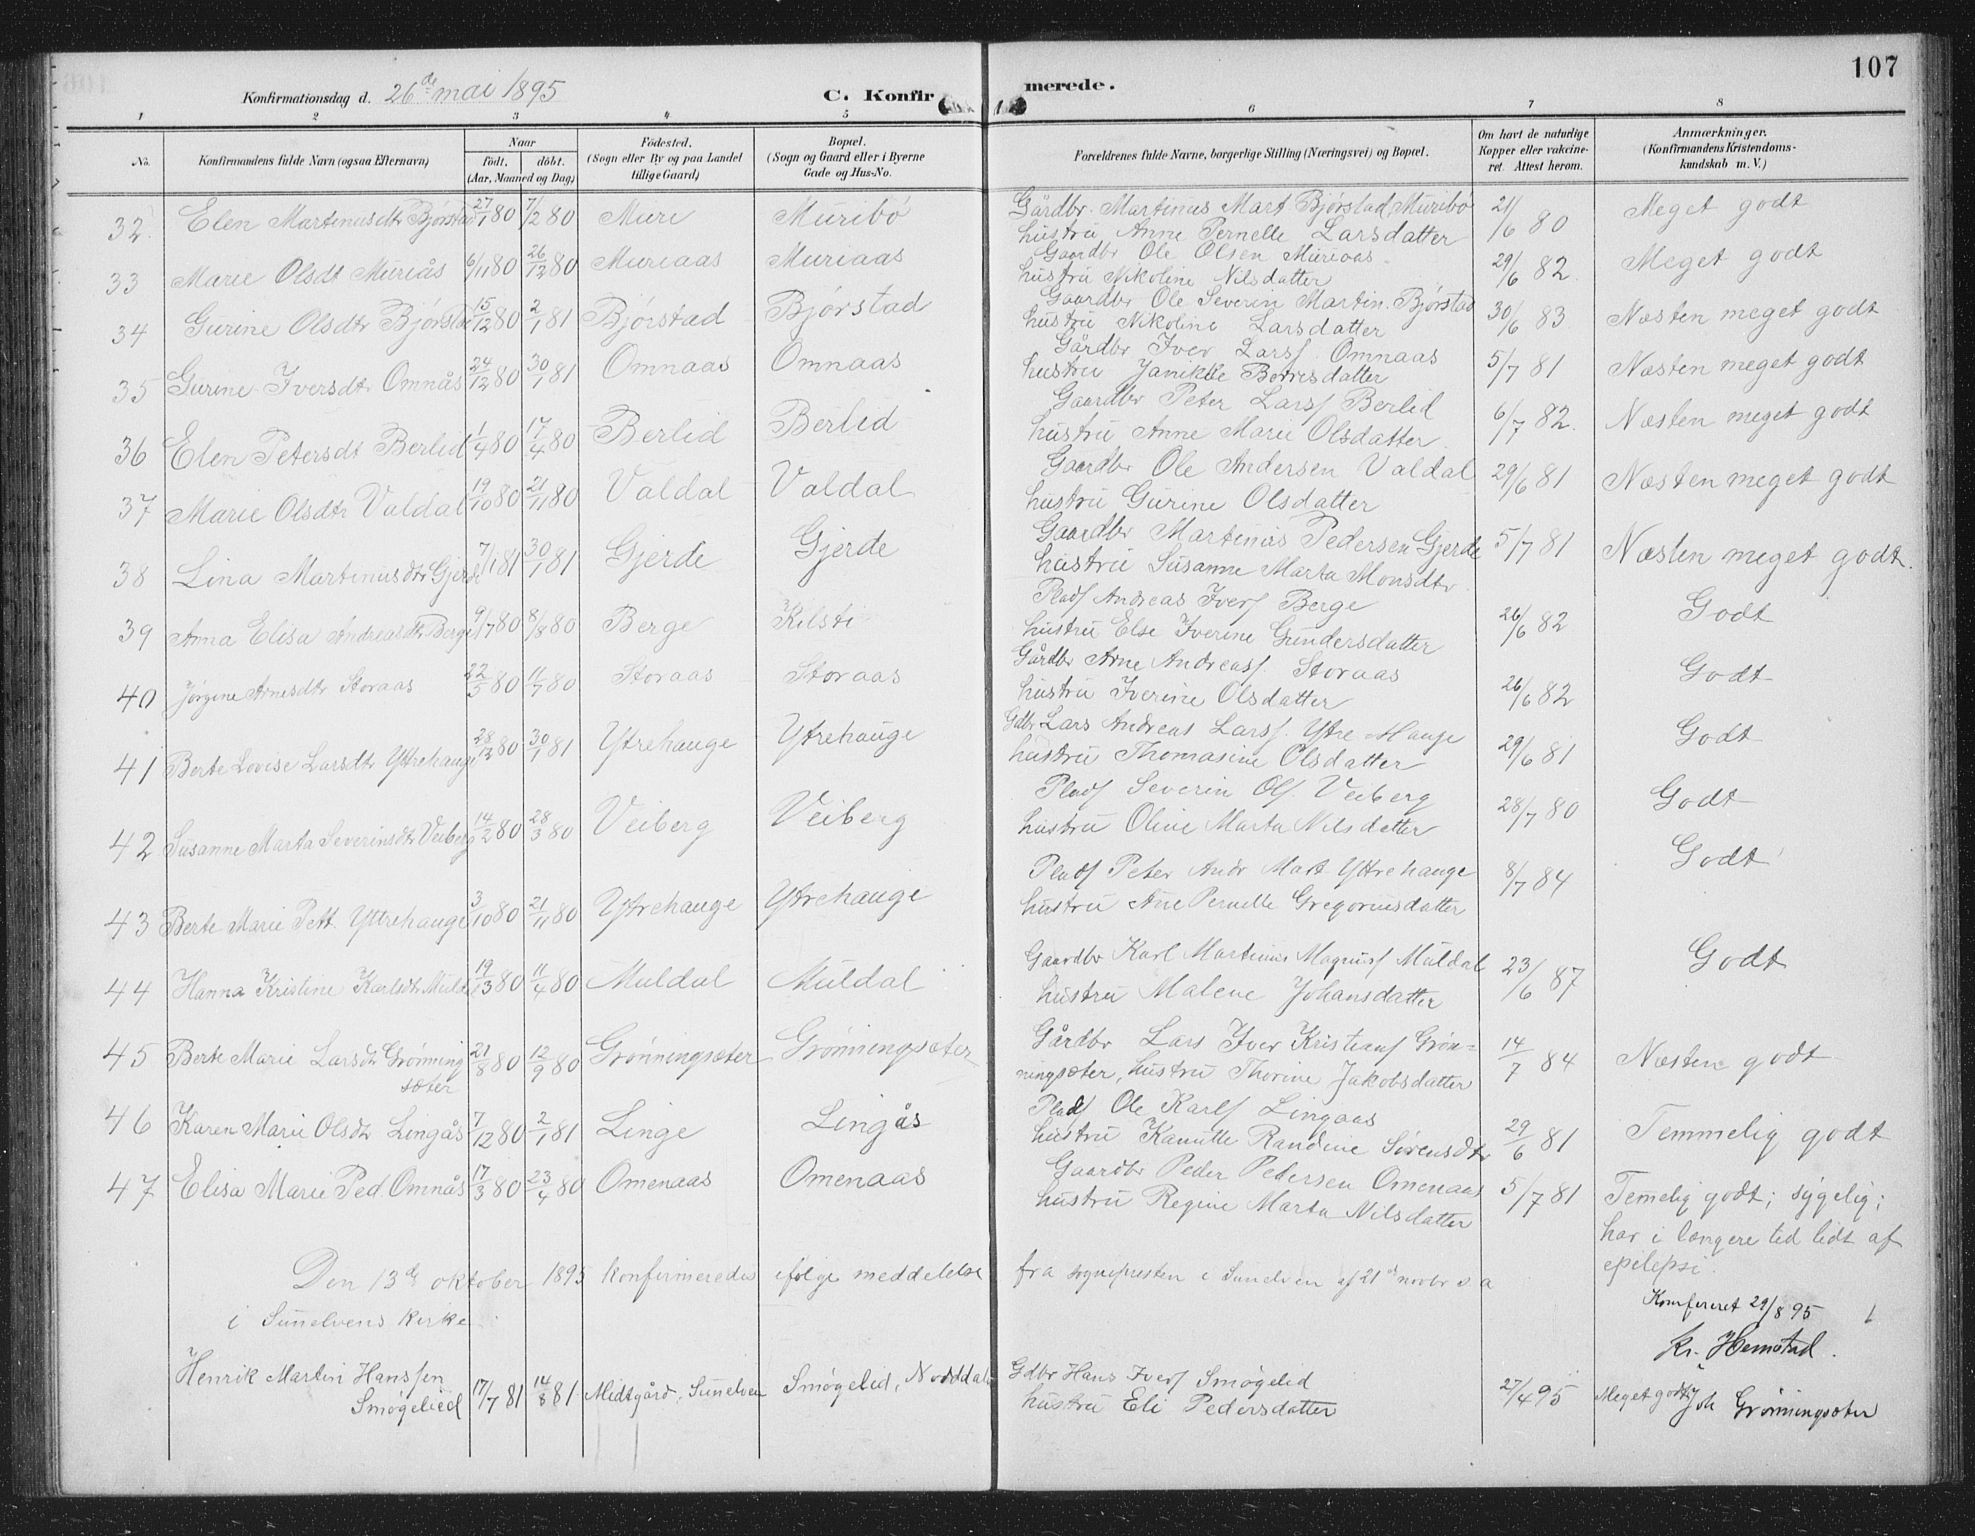 107
Konfirmationsdag d. 26de mai 1895 C. Konfirmerede.
1 2 3 4 5 6 7 8
No. Konfirmandens fulde Navn (ogsaa Efternavn) Naar födt, döbt. (Aar, Maaned og Dag) Födested. (Sogn eller By og paa Landet tillige Gaard) Bopæl. (Sogn og Gaard eller i Byerne Gade og Hus-No. Forældrenes fulde Navne, borgerlige Stilling (Næringsvei) og Bopæl. Om havt de naturlige Kopper eller vakcineret. Attest herom. Anmærkninger. (Konfirmandens Kristendomskundskab m. V.)
32. Elen Martinusdtr Bjørstad 27/1 80 7/2 80 Muri Muribø Gårdbr. Martinus Mart Bjørstad, Muribø 21/6 80 Meget godt
hustru Anne Pernelle Larsdatter
33 Marie Olsdt Muriås 6/11 80 26/12 80 Muriaas Muriaas Gaardbr Ole Olsen Muriaas 29/6 82. Meget godt
hustru Nikoline Nilsdatter
34 Gurine Olsdtr Bjørstad 15/12 80 2/1 81 Bjørstad Bjørstad Gaardbr Ole Severin Martin. Bjørstad 30/6 83 Næsten meget godt
hustru Nikoline Larsdatter
35 Gurine Iversdtr Omnås 24/12 80 30/1 81 Omnaas Omnaas Gårdbr Iver Larss Omnaas 5/7 81 Næsten meget godt
hustru Janikke Borresdatter
36 Elen Petersdt Berlid 1/4 80 17/4 80 Berlid Berlid Gaardbr Peter Larss Berlid 6/7 82. Næsten meget godt
hustru Anne Marie Olsdatter
37 Marie Olsdtr Valdal 19/10 80 21/11 80 Valdal Valdal Gaardbr Ole Andersen Valdal 29/6 81 Næsten meget godt
hustru Gurine Olsdatter
38 Lina Martinusdtr Gjerde 7/1 81 30/1 81 Gjerde Gjerde Gaardbr Martinus Pedersen Gjerde 5/7 81 Næsten meget godt.
hustru Susanne Marta Monsdtr
39 Anna Elisa Andreasdtr Berge 9/7 80 8/8 80 Berge Kilsti Plads Andreas Ivers Berge 26/6 82 Godt
hustru Else Iverine Gundersdatter
40 Jørgine Arnesdtr Storaas 22/5 80 11/7 80 Storaas Storaas Gårdbr Arne Andreass Storaas 26/6 82 Godt
hustru Iverine Olsdatter
41 Berte Lovise Larsdtr Yttrehauge 28/12 80 30/1 81 Ytrehauge Ytrehauge Gdbr Lars Andreas Larss. Ytre Hauge 29/6 81 Godt
hustru Thomasine Olsdatter
42 Susanne Marta Severinsdtr Veiberg 14/2 80 28/3 80 Veiberg Veiberg Plads Severin Ols. Veiberg 28/7 80 Godt
hustru Oline Marta Nilsdatter
43 Berte Marie Pett Yttrehauge 3/10 80 21/11 80 Ytrehauge Ytrehauge Plads Peter Andr Mart Yttrehauge 8/7 84 Godt
hustru Ane Pernelle Gregoriusdatter
44 Hanna Kristine Karlsdtr Muldal 19/3 80 11/4 80 Muldal Muldal Gaardbr Karl Martinus Magnuss Muldal 23/6 87 Godt
hustru Malene Johansdatter
45 Berte Marie Larsdtr Grønning 21/8 80 12/9 80 Grønningsæter Grønningsæter Gårdbr Lars Iver Kristians Grøn= 14/7 84 Næsten godt
sæter ningsæter, hustru Thorine Jakobsdatter
46 Karen Marie Olsdtr Lingås 7/12 80 2/1 81 Linge Lingås Plads Ole Karls Lingaas 29/6 81 Temmelig godt
hustru Kanutte Randine Sørensdtr
47 Elisa Marie Ped Omnås 17/3 80 23/4 80 Omenaas Omenaas Gaardbr Peder Pedersen Omenaas 5/7 81 Temelig godt; sygelig;
hustru Regine Marta Nilsdatter har i længere tid lidt af
epilepsi.
Den 13de oktober 1895 konfirmeredes ifølge meddelelse fra sognepresten i Sunelven af 21de novbr s a
i Sunelvens kirke
Konfereret 29/8 95
Kr. Hemstad.
Henrik Martin Hanssen 17/7 81 14/8 81 Midtgård, Sunelven Smøgelid, Norddal Gdbr Hans Ivers Smøgelid 27/4 95 Meget godt Joh Grønningsæter
Smøgelied hustru Eli Pedersdatter